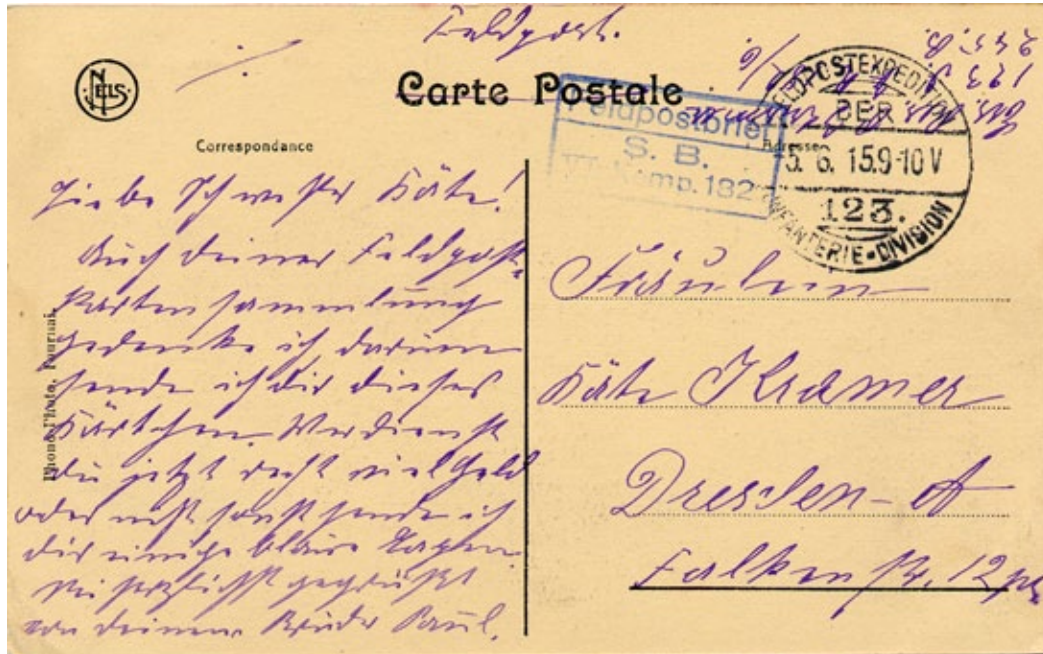 Feldpost.
NELS
Carte Postale
Correspondance
Adresse
Feldpostbrief
S. B.
Komp. 182
FELDPOSTEXPEDITION
DER
5. 6. 15.9-10V
123.
INFANTERIE-DIVISION
Liebe Schwester Käte!
Auch deiner Feldpost-
kartensammlung
gedenke ich, darum
sende ich dir dieses
Kärtchen. Verdienst
du jetzt recht viel Geld
oder nicht sonst sende ich
dir einige blaue Lappen.
Sei herzlichst gegrüßt
von deinem Bruder Paul.
Phono-Photo, Tournai.
Fräulein
Käte Kramer
Dresden-A
Falkenstr. 12